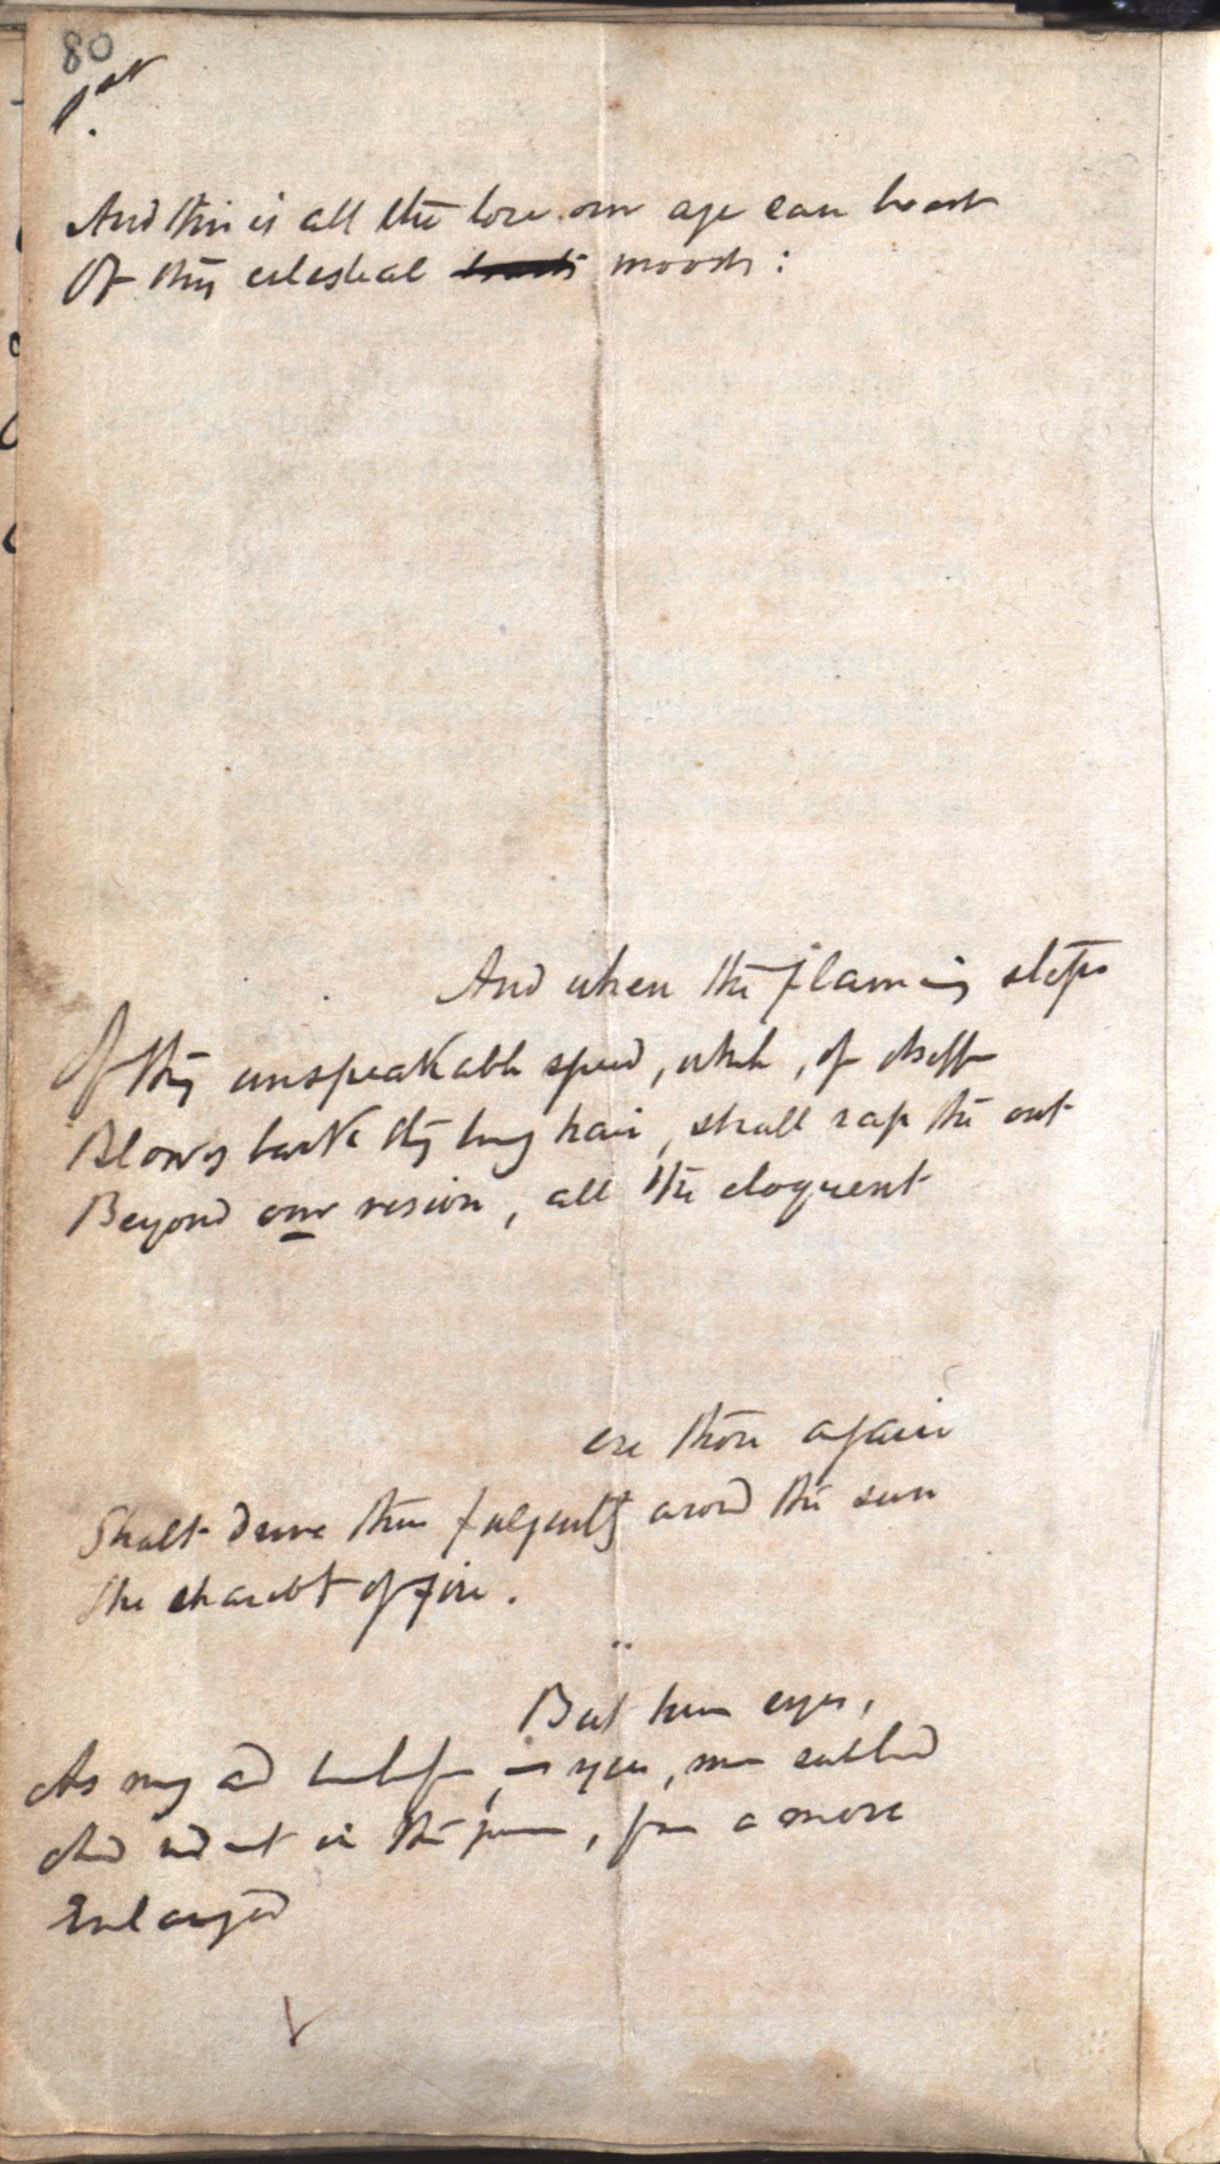 80
And this is all the lore our age can boast
Of thy celestial moods:
And when the flaming steps
Of thy unspeakable speed, which, of itself
Blows back thy long hair, shall rap thee out
Beyond our vision, all the eloquent
ere thou again
Shalt drive thus fulgently around the sun
The chariot of fire.
But human eyes,
As many and
And in the , from a more
Enlarged